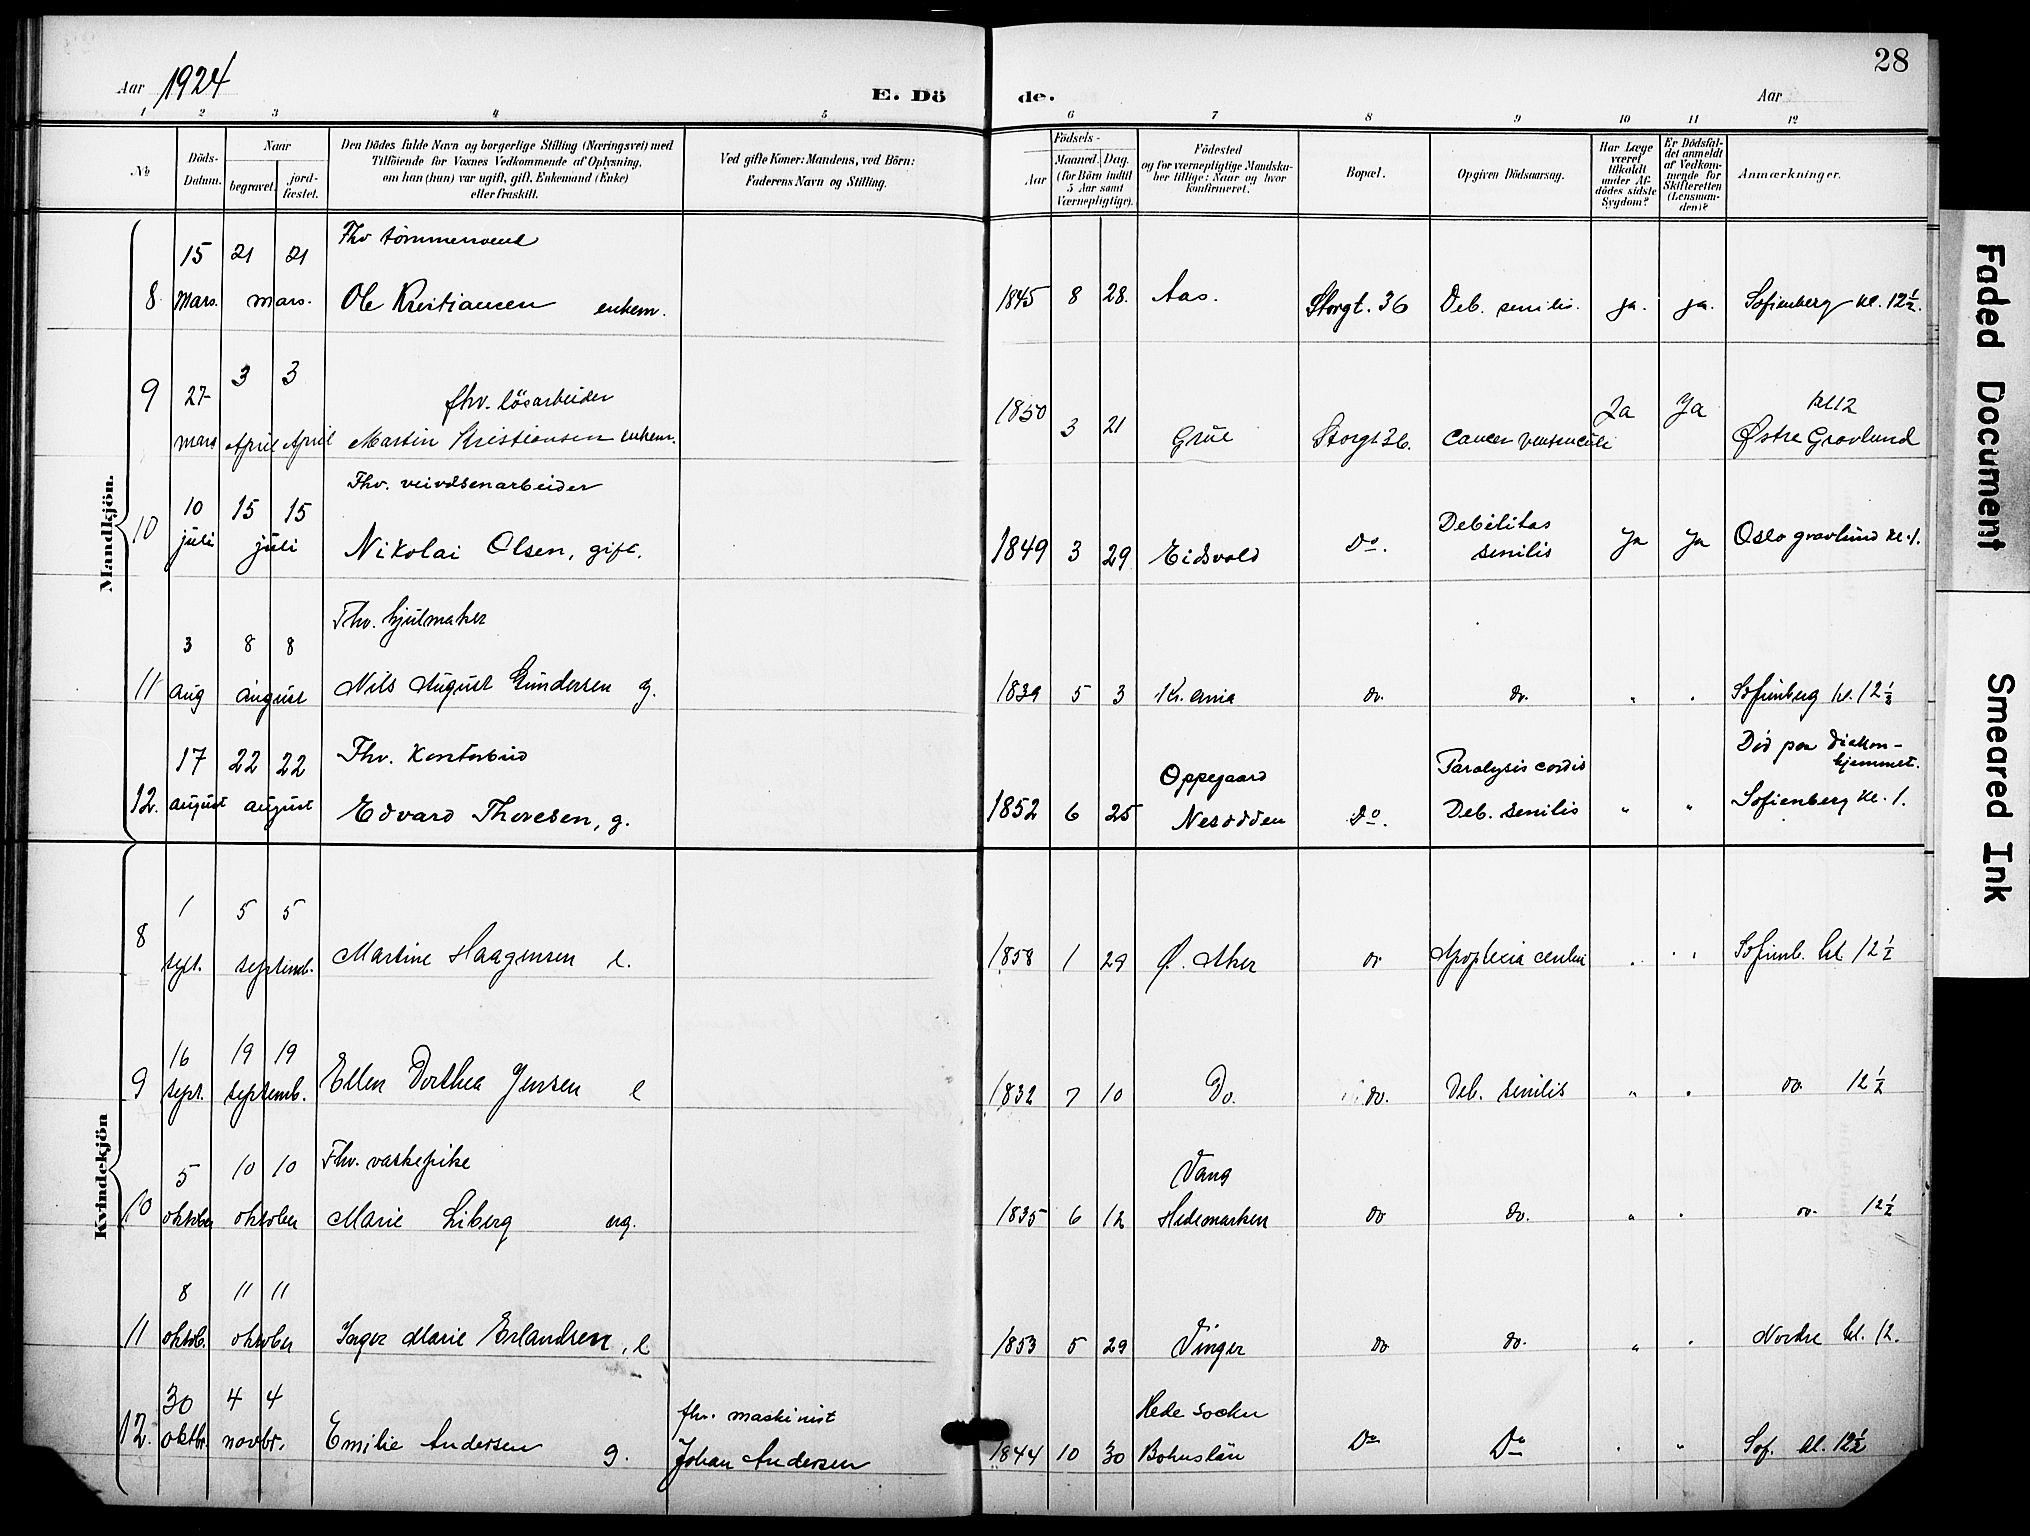 28
Aar 1924
E. Dö de.
Aar
1 2 3 4 5 6 7 8 9 10 11 12
№
Döds-Datum.
Naar
begravet. jord-fæstet.
Den Dödes fulde Navn og borgerlige Stilling (Næringsvei) med
Tilföiende for Voxnes Vedkommende af Oplysning,
om han (hun) var ugift, gift, Enkemand (Enke)
eller fraskilt.
Ved gifte Koner: Mandens, ved Börn:
Faderens Navn og Stilling.
Födsels-
Aar
Maaned. Dag.
(for Börn indtil
5 Aar samt
Værnepligtige).
Födested
og for værnepligtige Mandska-
ber tillige: Naar og hvor
konfirmeret.
Bopæl.
Opgiven Dödsaarsag.
Har Læge
været
tilkaldt
under Af-
dödes sidste
Sygdom?
Er Dödsfal-
det anmeldt
af Vedkom-
mende for
Skifteretten
(Lensman-
den)?
Anmærkninger.
Mandkjön.
Fhv tømmermand
8 15 mars. 21 21 mars. Ole Kristiansen enkem. 1845 8 28. Aas. Storgt. 36 Deb. senilis. ja. ja. Sofienberg kl. 12½.
fhv. løsarbeider
9 27 mars 3 April 3 April Martin Kristiansen enkem. 1850 3 21 Grue Storgt 36. Cancer ventriculi Ja Ja kl 12
Østre Gravlund
Fhv. veivæsenarbeider
10 10 juli 15 15 juli Nikolai Olsen, gift. 1849 3 29 Eidsvold Do. Debilitas
senilis Ja Ja Oslo gravlund kl. 1.
Fhv. hjulmaker
11 3 aug 8 8 august Nils August Gundersen g. 1839 5 3 Kr.ania do. do. " " Sofienberg kl. 12½
Fhv. Kontorbud
12. 17 august 22 22 august Edvard Thoresen, g. 1852 6 25 Oppegaard
Nesodden Do. Paralysis cordis
Deb. senilis " " Død paa Diakon-
hjemmet.
Sofienberg kl. 1.
Kvindekjön
8 1 sept. 5 5 septemb. Martine Haagensen e. 1858 1 29 Ø. Aker do Apoplexia cerebri " " Sofienb. kl 12½
9 16 sept. 19 19 septemb. Ellen Dorthea Jensen e 1832 7 10 Do. do. Deb. senilis " " do. 12½
Fhv. vaskepike
10 5 oktober 10 10 oktober Marie Liberg ug. 1835 6 12 Vang
Hedemarken do do. " " do. 12½
11 8 oktob. 11 11 oktober Inger Marie Erlandsen, e 1853 5 29 Vinger do do. " " Nordre kl. 12.
12. 30 oktbr. 4 4 novbr. Emilie Andersen g. fhv. maskinist
Johan Andersen 1844 10 30 Hede socken
Bohuslän Do Do " " Sof. kl. 12½
Faded Document
Smeared Ink